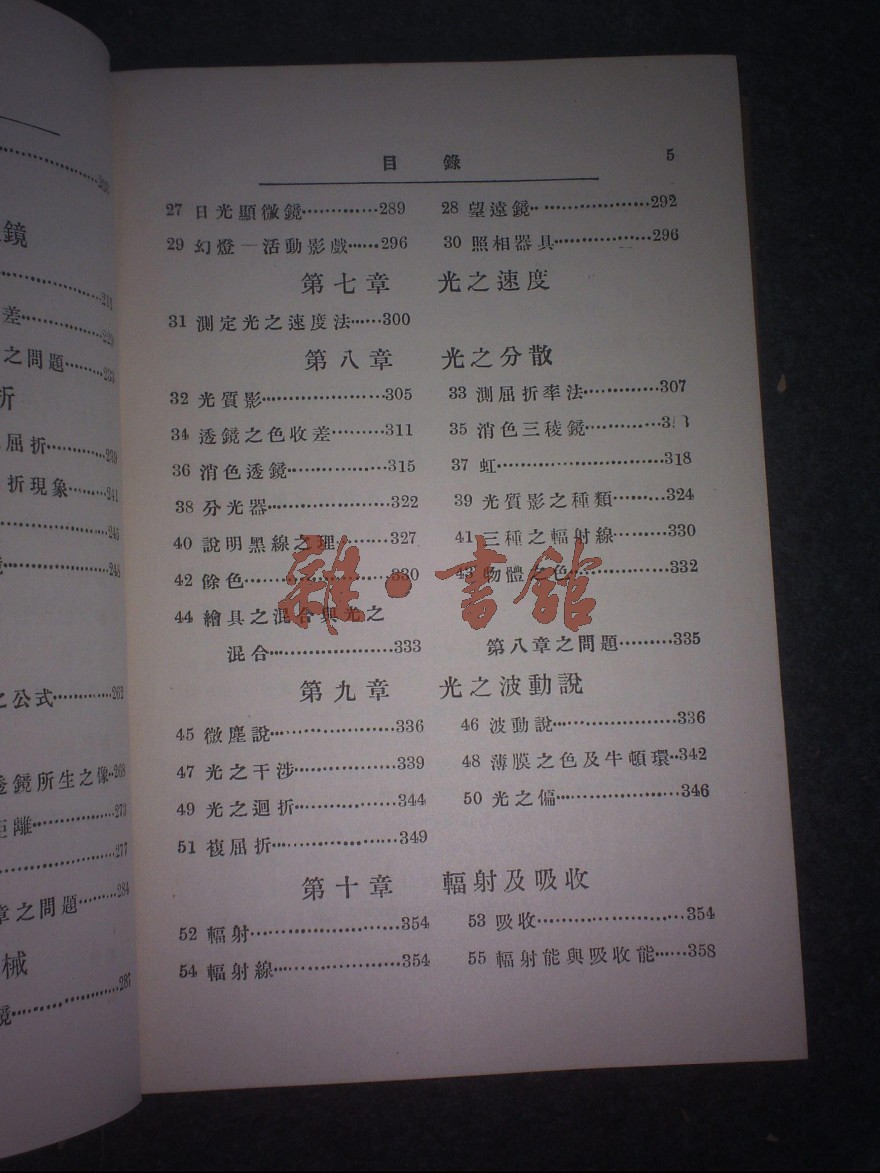 鏡
差
之問題
折
屈折
折現象
241
245
248
之公式 262
透鏡所生之像 268
距離 273
277
章之問題 284
械
鏡 287
目錄 5
27 日光顯微鏡 289 28 望遠鏡 292
29 幻燈—活動影戲 296 30 照相器具 296
第七章 光之速度
31 測定光之速度法 300
第八章 光之分散
32 光質影 305 33 測屈折率法 307
34 透鏡之色收差 311 35 消色三稜鏡
36 消色透鏡 315 37 虹 318
38 分光器 322 39 光質影之種類 324
40 說明黑線之理 327 41 三種之輻射線 330
42 餘色 330 43 物體之色 332
44 繪具之混合與光之
混合 333 第八章之問題 335
第九章 光之波動說
45 微塵說 336 46 波動說 336
47 光之干涉 339 48 薄膜之色及牛頓環 342
49 光之迴折 344 50 光之偏 346
51 複屈折 349
第十章 輻射及吸收
52 輻射 354 53 吸收 354
54 輻射線 354 55 輻射能與吸收能 358
雜·書館